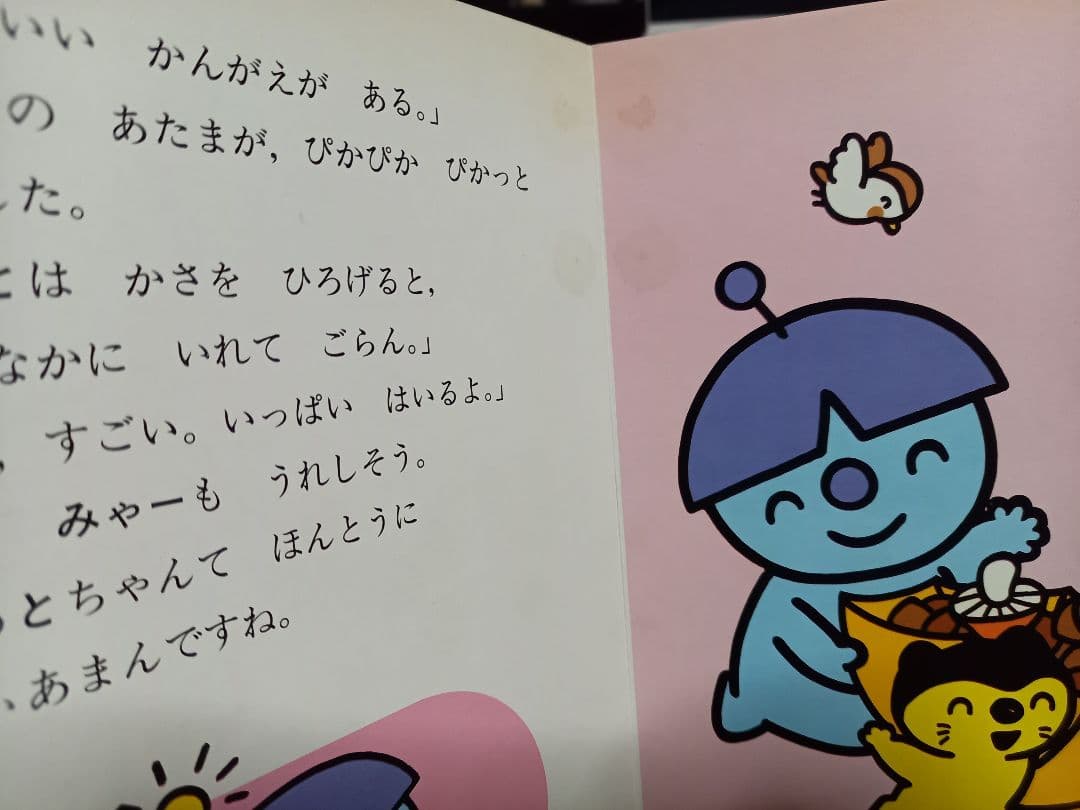 いい　かんがえが　ある。」
の　あたまが，ぴかぴか　ぴかっと
した。
とは　かさを　ひろげると，
なかに　いれて　ごらん。」
すごい。いっぱい　はいるよ。」
みゃーも　うれしそう。
とちゃんて　ほんとうに
、あまんですね。